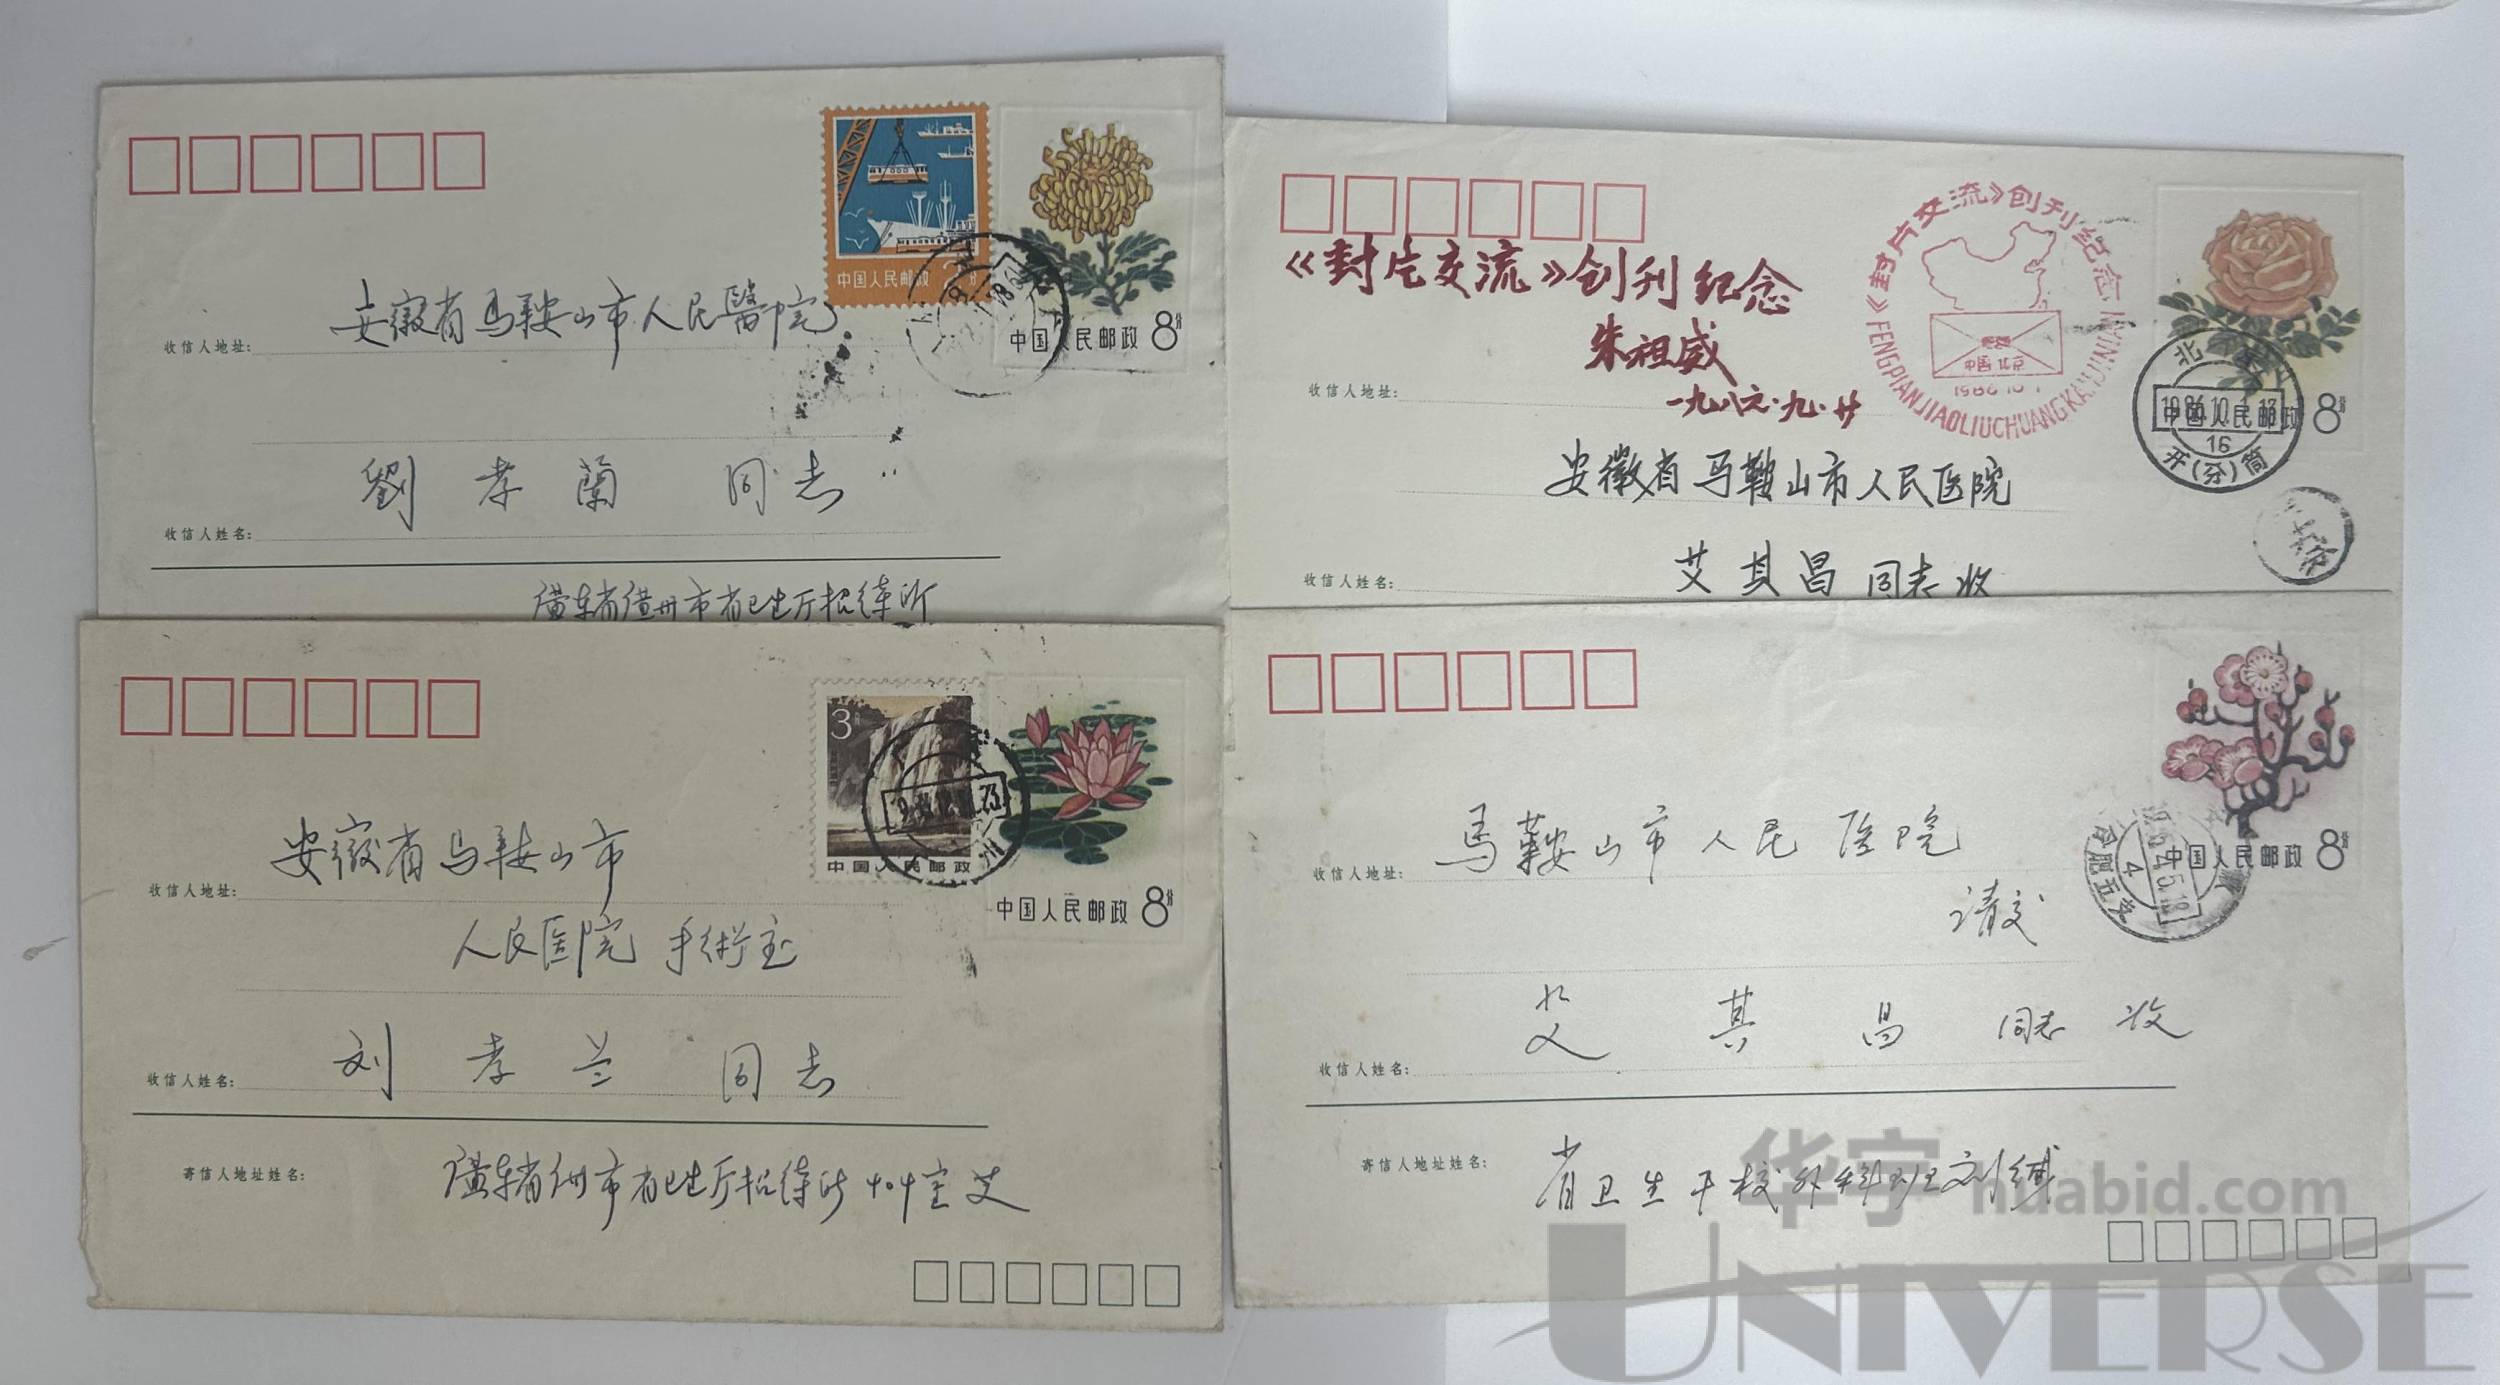 中国人民邮政
中国人民邮政 8分
收信人地址:
安徽省马鞍山市人民醫院
收信人姓名:
劉孝蘭 同志
廣东省广州市省卫生厅招待所
《封片交流》创刊纪念
朱祖威
一九八六.九.廿
《封片交流》创刊纪念
FENGPIANJIAOLIUCHUANGKANJINIAN
中国 北京
1986.10.1
北京
1986.10.1
16
开(分)筒
中国人民邮政 8分
收信人地址:
安徽省马鞍山市人民医院
收信人姓名:
艾其昌 同志收
3分
中国人民邮政
中国人民邮政 8分
收信人地址:
安徽省马鞍山市
人民医院 手術室
收信人姓名:
刘孝兰 同志
寄信人地址姓名:
廣东省广州市省卫生厅招待所404室 艾
中国人民邮政 8分
合肥
4
收信人地址:
馬鞍山市人民医院
请交
收信人姓名:
艾其昌 同志 收
寄信人地址姓名:
省卫生干校外科班刘缄
华宇 huabid.com
UNIVERSE